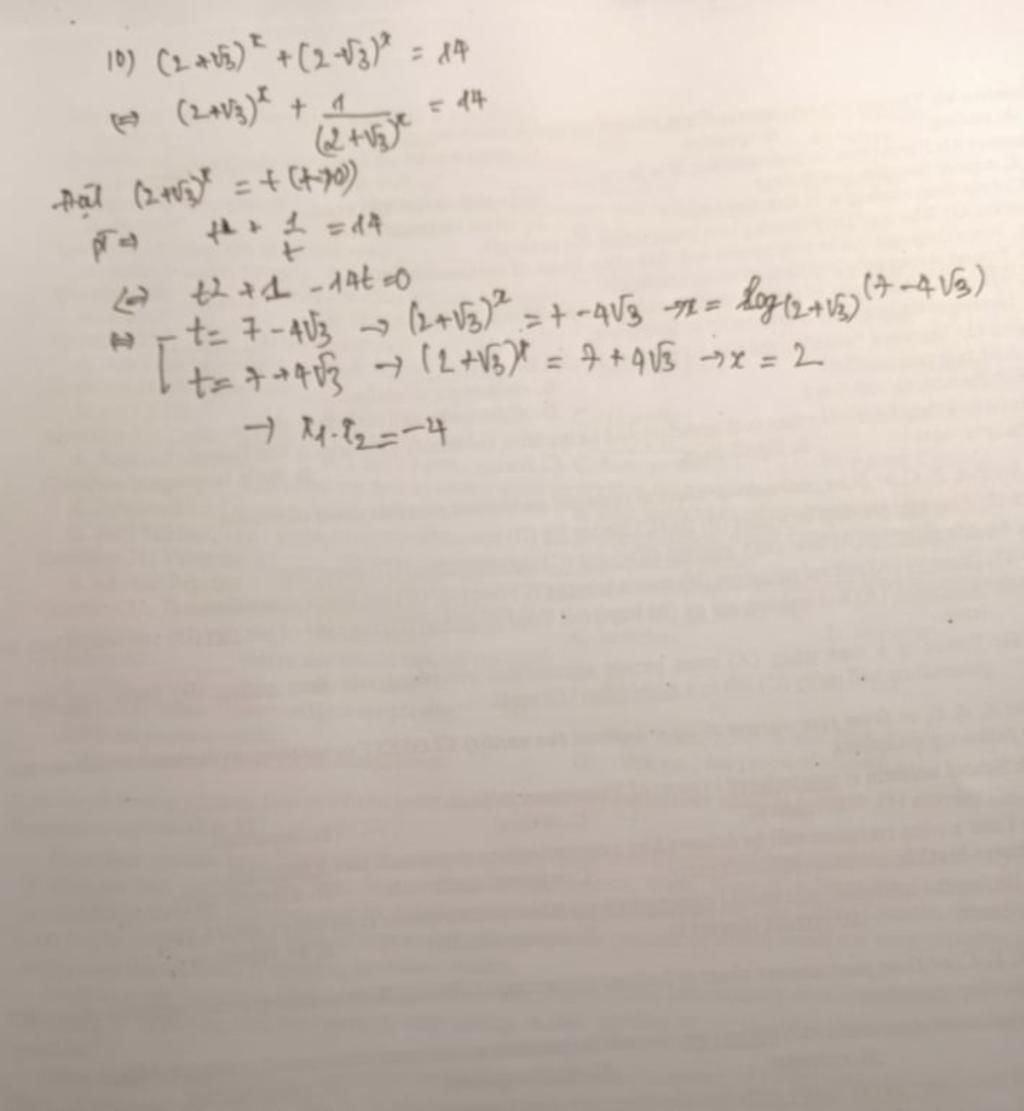 10) (2+√3)^x + (2-√3)^x = 14
⇔ (2+√3)^x + 1/(2+√3)^x = 14
Đặt (2+√3)^x = t (t>0)
PT ⇒ t + 1/t = 14
⇔ t² + 1 - 14t = 0
⇔ [ t = 7 - 4√3 → (2+√3)^x = 7 - 4√3 → x = log(2+√3) (7 - 4√3)
t = 7 + 4√3 → (2+√3)^x = 7 + 4√3 → x = 2
→ x1.x2 = -4